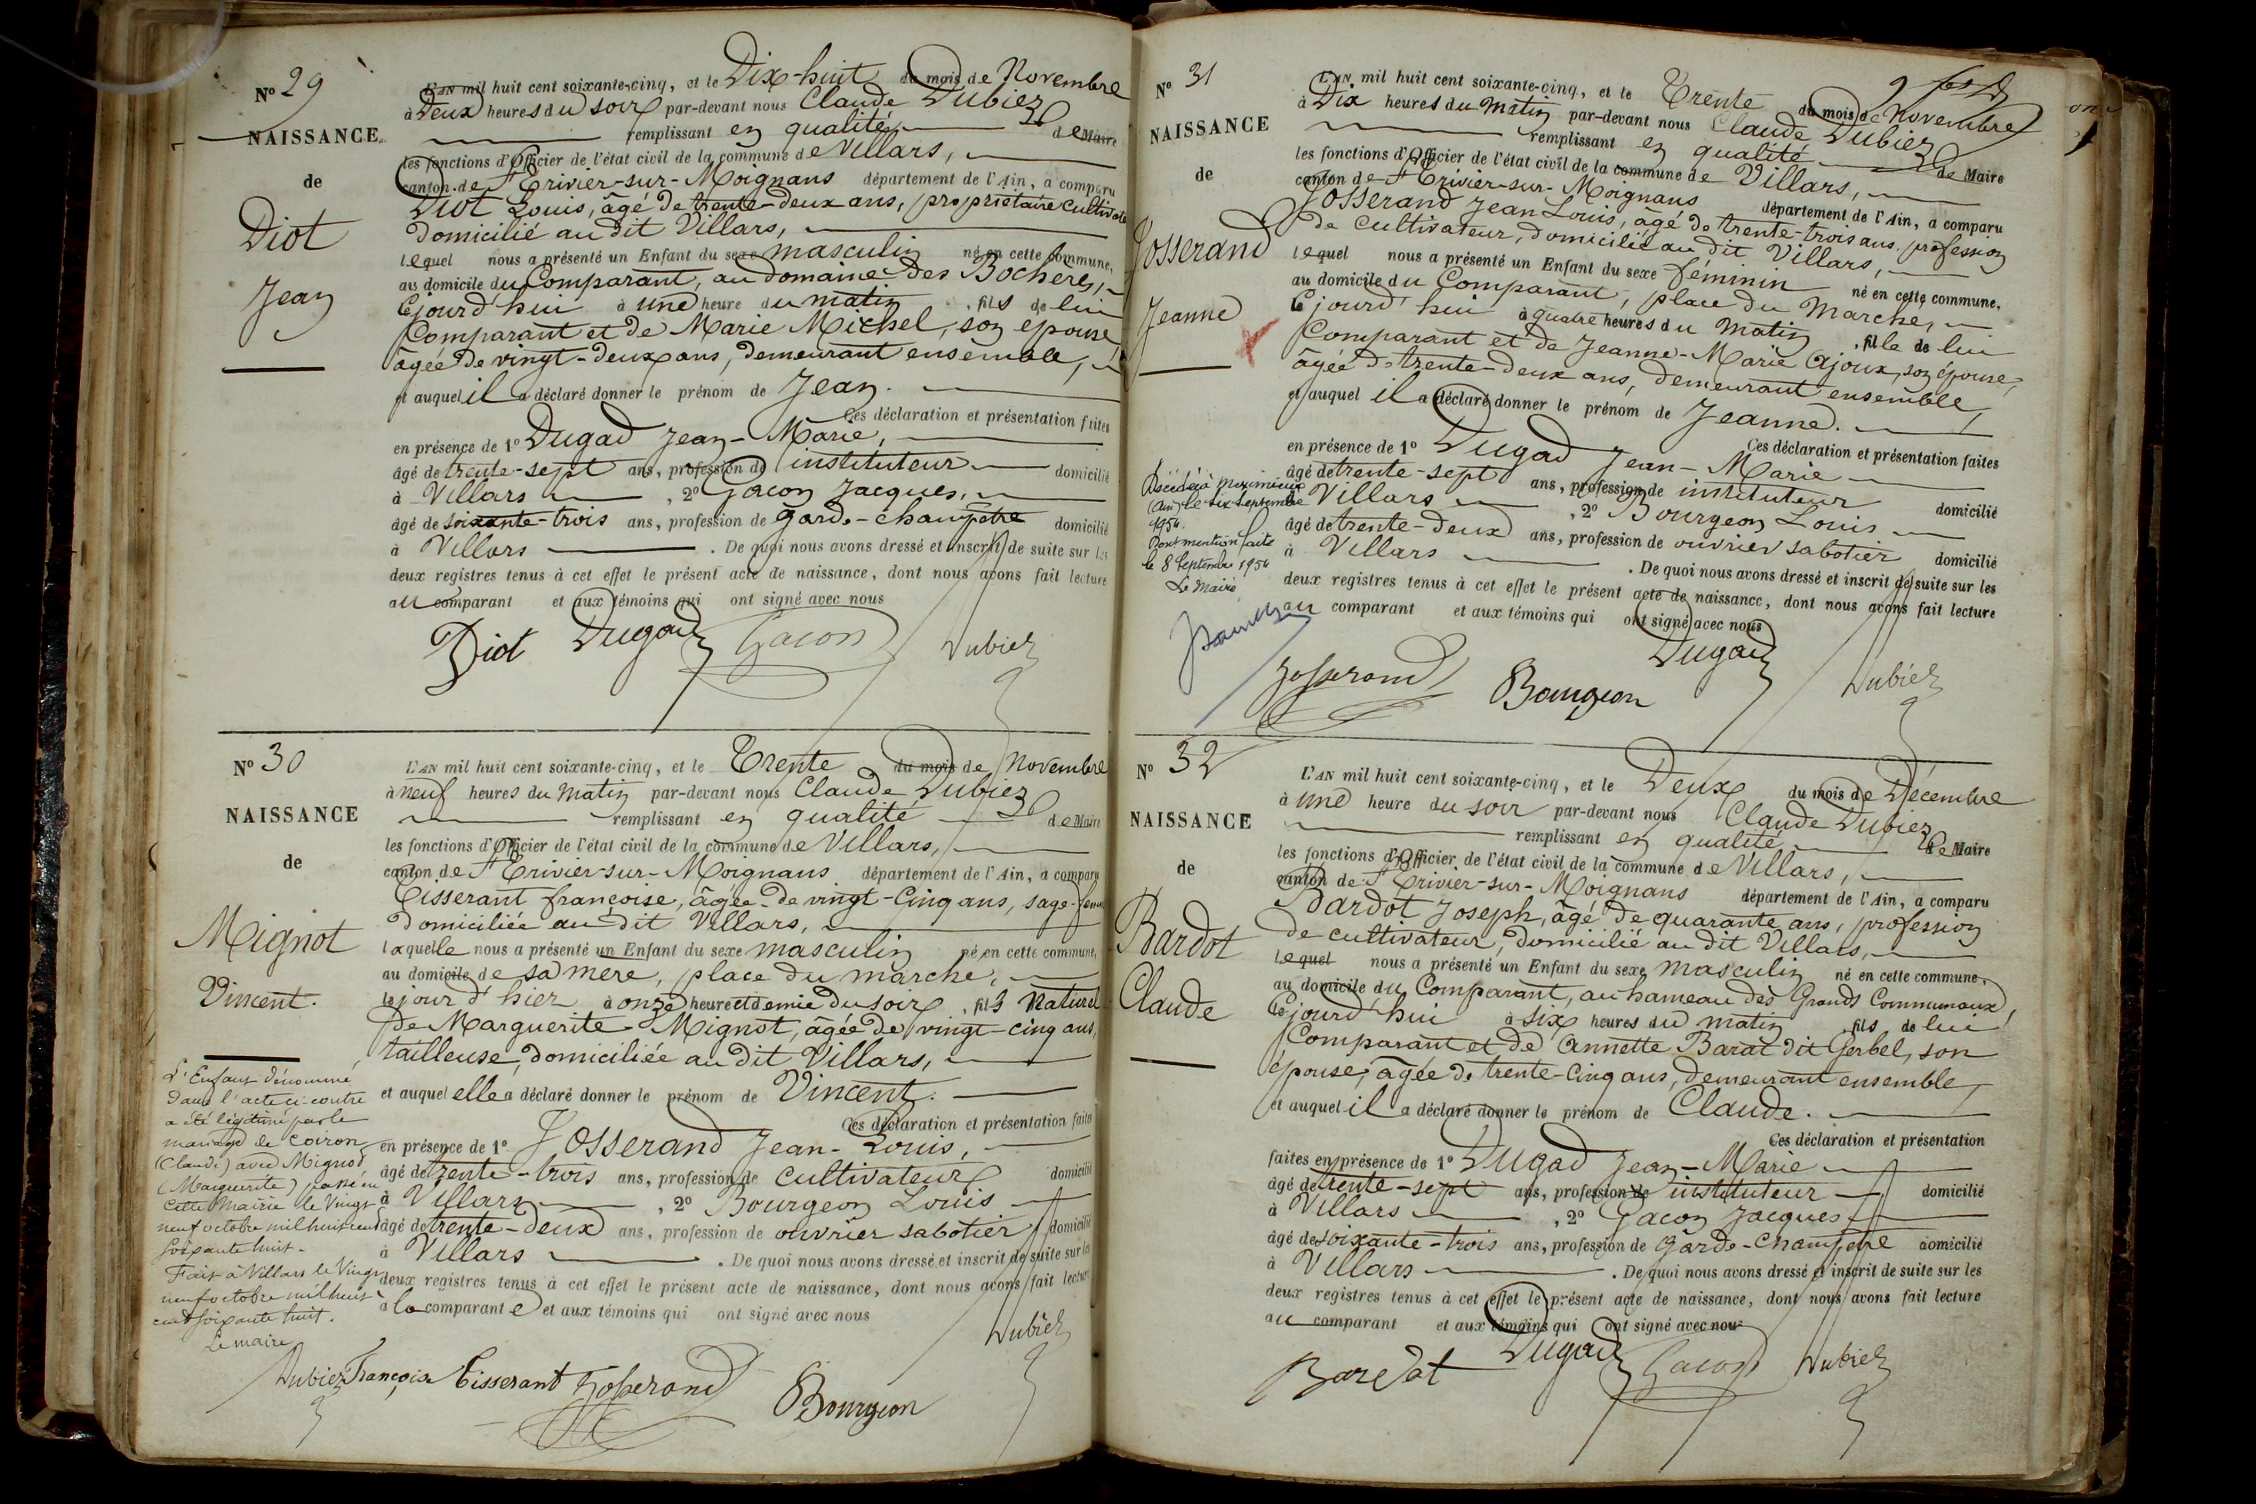 Nº 29
NAISSANCE
de
Diot
Jean
L'AN mil huit cent soixante-cinq, et le Dix-huit du mois de Novembre
à Deux heures du soir par-devant nous Claude Dubiez
remplissant en qualité de Maire
les fonctions d'Officier de l'état civil de la commune de Villars,
canton de St Trivier-sur-Moignans département de l'Ain, a comparu
Diot Louis, âgé de trente-deux ans, propriétaire cultivate
domicilié au dit Villars,
lequel nous a présenté un Enfant du sexe masculin né en cette commune,
au domicile du Comparant, au domaine des Bochères,
Cejourd'hui à une heure du matin, fils de lui
Comparant et de Marie Michel, son épouse,
âgée de vingt-deux ans, demeurant ensemble,
et auquel il a déclaré donner le prénom de Jean.
Ces déclaration et présentation faites
en présence de 1º Dugad Jean-Marie,
âgé de trente-sept ans, profession de instituteur domicilié
à Villars, 2º Gacon Jacques,
âgé de soixante-trois ans, profession de garde-champêtre domicilié
à Villars. De quoi nous avons dressé et inscrit de suite sur les
deux registres tenus à cet effet le présent acte de naissance, dont nous avons fait lecture
au comparant et aux témoins qui ont signé avec nous
Diot Dugad Gacon Dubiez
Nº 30
NAISSANCE
de
Mignot
Vincent.
L'Enfant dénommé
dans l'acte ci-contre
a été légitimé par le
mariage de Coiron
(Claude) avec Mignot
(Marguerite) passé en
cette Mairie le Vingt
neuf octobre mil huit cent
soixante huit.
Fait à Villars le Vingt
neuf octobre mil huit
cent soixante huit.
Le maire
Dubiez
L'AN mil huit cent soixante-cinq, et le Trente du mois de Novembre
à neuf heures du matin par-devant nous Claude Dubiez
remplissant en qualité de Maire
les fonctions d'Officier de l'état civil de la commune de Villars,
canton de St Trivier-sur-Moignans département de l'Ain, a comparu
Tisserant françoise, âgée de vingt-cinq ans, sage-femme
domiciliée au dit Villars,
laquelle nous a présenté un Enfant du sexe masculin né en cette commune,
au domicile de sa mère, place du marché,
le jour d'hier à onze heures et demie du soir, fils naturel
de Marguerite Mignot, âgée de vingt-cinq ans,
tailleuse, domiciliée au dit Villars,
et auquel elle a déclaré donner le prénom de Vincent.
Ces déclaration et présentation faites
en présence de 1º Josserand Jean-Louis,
âgé de trente-trois ans, profession de cultivateur domicilié
à Villars, 2º Bourgeon Louis
âgé de trente-deux ans, profession de ouvrier sabotier domicilié
à Villars. De quoi nous avons dressé et inscrit de suite sur les
deux registres tenus à cet effet le présent acte de naissance, dont nous avons fait lecture
à la comparante et aux témoins qui ont signé avec nous
Dubiez
Françoise Tisserant Josserand Bourgeon
Nº 31
NAISSANCE
de
Josserand
Jeanne
Décédée à Meximieux
(Ain) le six septembre
1954.
Dont mention faite
le 8 Septembre 1954
Le Maire
L'AN mil huit cent soixante-cinq, et le Trente du mois de Novembre
à Dix heures du matin par-devant nous Claude Dubiez
remplissant en qualité de Maire
les fonctions d'Officier de l'état civil de la commune de Villars,
canton de St Trivier-sur-Moignans département de l'Ain, a comparu
Josserand Jean Louis, âgé de trente-trois ans, profession
de cultivateur, domicilié au dit Villars,
lequel nous a présenté un Enfant du sexe féminin né en cette commune,
au domicile du Comparant, place du Marché,
Cejourd'hui à quatre heures du matin, fille de lui
Comparant et de Jeanne-Marie Ajoux, son épouse,
âgée de trente-deux ans, demeurant ensemble,
et auquel il a déclaré donner le prénom de Jeanne.
Ces déclaration et présentation faites
en présence de 1º Dugad Jean-Marie
âgé de trente-sept ans, profession de instituteur domicilié
à Villars, 2º Bourgeon Louis
âgé de trente-deux ans, profession de ouvrier sabotier domicilié
à Villars. De quoi nous avons dressé et inscrit de suite sur les
deux registres tenus à cet effet le présent acte de naissance, dont nous avons fait lecture
au comparant et aux témoins qui ont signé avec nous
Josserand Bourgeon Dugad Dubiez
Nº 32
NAISSANCE
de
Bardot
Claude
L'AN mil huit cent soixante-cinq, et le Deux du mois de Décembre
à une heure du soir par-devant nous Claude Dubiez
remplissant en qualité de Maire
les fonctions d'Officier de l'état civil de la commune de Villars,
canton de St Trivier-sur-Moignans département de l'Ain, a comparu
Bardot Joseph, âgé de quarante ans, profession
de cultivateur, domicilié au dit Villars,
lequel nous a présenté un Enfant du sexe masculin né en cette commune,
au domicile du Comparant, au hameau des Grands Communaux,
Cejourd'hui à six heures du matin, fils de lui
Comparant et de Annette Barat dit Gerbel, son
épouse, âgée de trente-cinq ans, demeurant ensemble,
et auquel il a déclaré donner le prénom de Claude.
Ces déclaration et présentation
faites en présence de 1º Dugad Jean-Marie
âgé de trente-sept ans, profession de instituteur domicilié
à Villars, 2º Gacon Jacques
âgé de soixante-trois ans, profession de garde-champêtre domicilié
à Villars. De quoi nous avons dressé et inscrit de suite sur les
deux registres tenus à cet effet le présent acte de naissance, dont nous avons fait lecture
au comparant et aux témoins qui ont signé avec nous
Bardot Dugad Gacon Dubiez